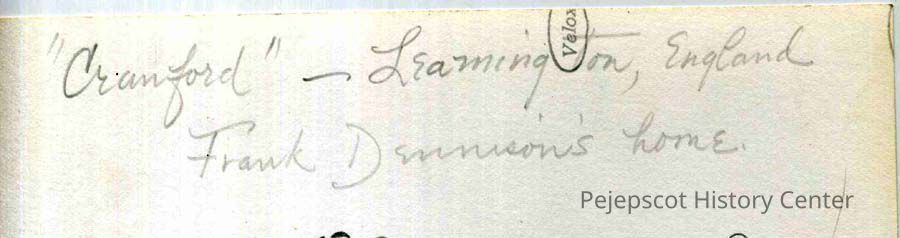 "Cranford" — Learmington, England
Velox
Frank Dennison's home.
Pejepscot History Center